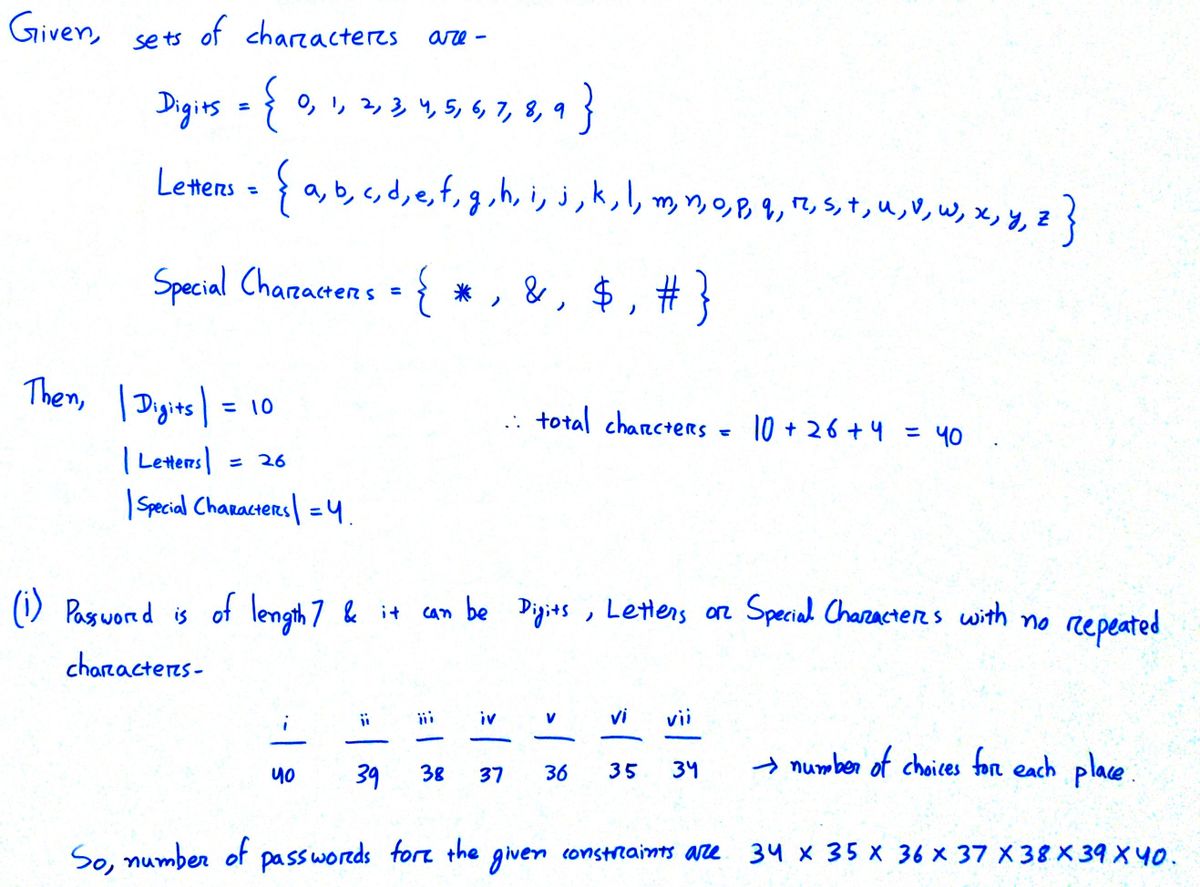 Given, sets of characters are -
Digits = { 0, 1, 2, 3, 4, 5, 6, 7, 8, 9 }
Letters = { a, b, c, d, e, f, g, h, i, j, k, l, m, n, o, p, q, r, s, t, u, v, w, x, y, z }
Special Characters = { * , & , $ , # }
Then, | Digits | = 10
∴ total charcters = 10 + 26 + 4 = 40 .
| Letters | = 26
| Special Characters | = 4.
(i) Password is of length 7 & it can be Digits , Letters or Special Characters with no repeated
characters-
i ii iii iv v vi vii
40 39 38 37 36 35 34 → number of choices for each place.
So, number of passwords for the given constraints are 34 x 35 x 36 x 37 x 38 x 39 x 40.